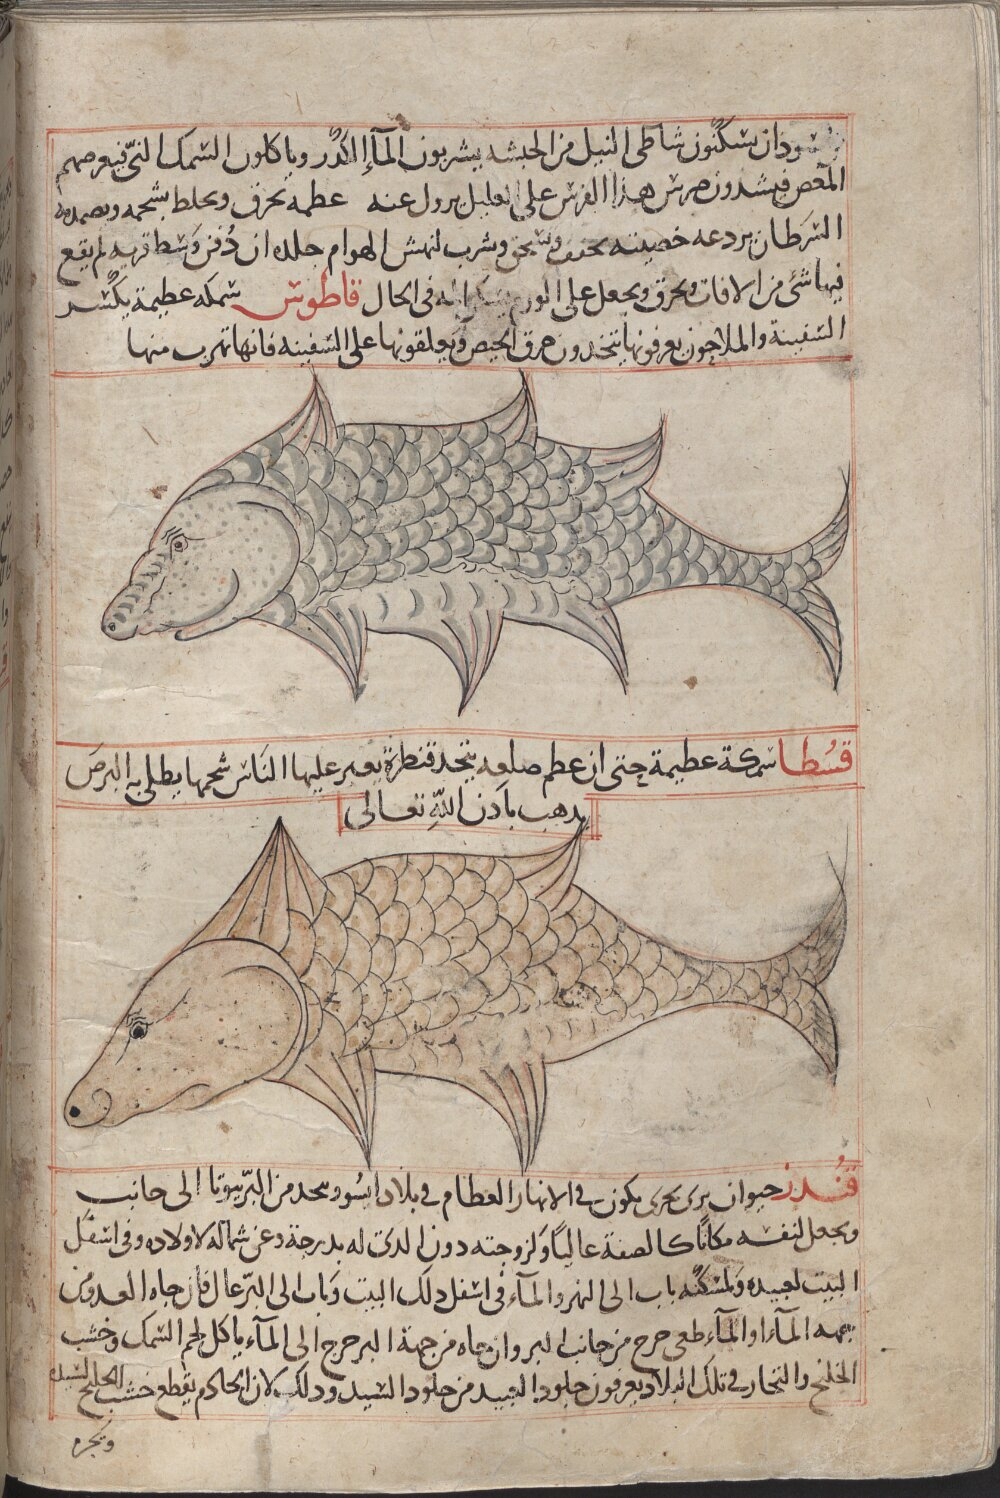 سودان يسكنون شاطى النيل من الحبشه يشربون المآء الكدر وياكلون السمك النى فيعرضهم
المغص فيشدون ضرس هذا الفرس على العليل يزول عنه عظمه يحرق ويخلط بشحمه ويضمد به
السرطان يردعه خصيته تجفف وتسحق وشرب لنهش الهوام جلده ان دُفن وَسَط قريه لم يقع
فيها شئ من الافات ويحرق ويجعل على الورم فى الحال قاطوس سمكه عظيمة يكسر
السفينة والملاحون يعرفونها يتخدون خرق الحيض ويعلقونها على السفينه فانها تهرب منها
قسُطا سمكة عظيمة حتى ان عظم ضلعه يتخذ قنطرة يعبر عليها النَاس شحمها يطلى به البرصَ
يدهب باذن اللّهِ تعالى
قُندر حيوان برى بحرى يكون فى الانهار العظام فى بلاد ايسُو ويتخد من البَرّ بيوتا الى جانب
ويجعل لنفسه مكانًا كالصفة عاليًا وَلزوجته دون الدى له بدرجة وعن شماله لاولاده وفى اسفل
البيت لعبيده وَلمسكنه باب الى النهر والمآء فى اسفل ذلك البيت وَباب الى البرّ عال فان جاه العدو من
جهه المآء او المآء طغى خرج من جانب البر وان جاه من جهة البر خرج الى المآء ياكل لحم السمك وخشب
الخلنج والتجار فى تلك البلاد يعرفون جلود العبيد من جلود السيد ودلك لان الخادم يقطع خشب الخلنج لسيده
ويجره